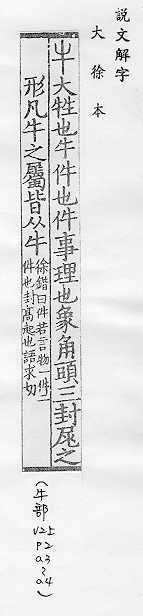 說文解字
大徐本
牛大牲也牛件也件事理也象角頭三封𡰥之
形凡牛之屬皆从牛徐鍇曰件若言物一件二
件也封高起也語求切
(牛部
V25
P2
a3
~
a4)